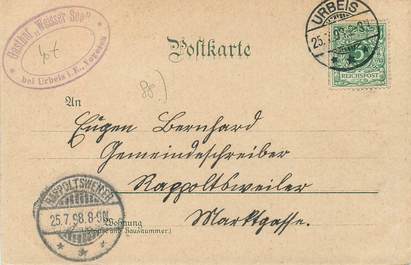 Gasthof „Weisser See"
bei Urbeis i. E., Vogesen
Postkarte
URBEIS
25.7.98
5
REICHSPOST
An
Eugen Bernhard
Gemeindeschreiber
Rappoltsweiler
Marktgasse.
RAPPOLTSWEILER
25.7.98.8-9N
Wohnung
(Strasse und Hausnummer.)